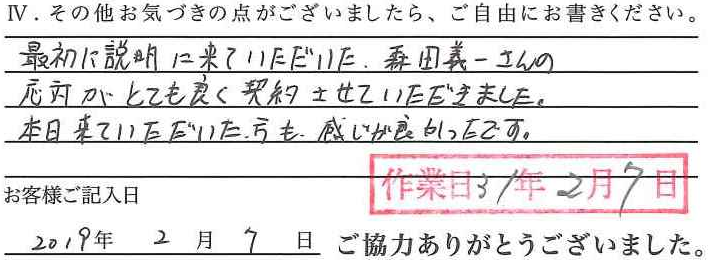 Ⅳ．その他お気づきの点がございましたら、ご自由にお書きください。
最初に説明に来ていただいた、森田義一さんの
応対がとても良く契約させていただきました。
本日来ていただいた、方も、感じが良かったです。
作業日31年2月7日
お客様ご記入日
2019年 2 月 7 日 ご協力ありがとうございました。